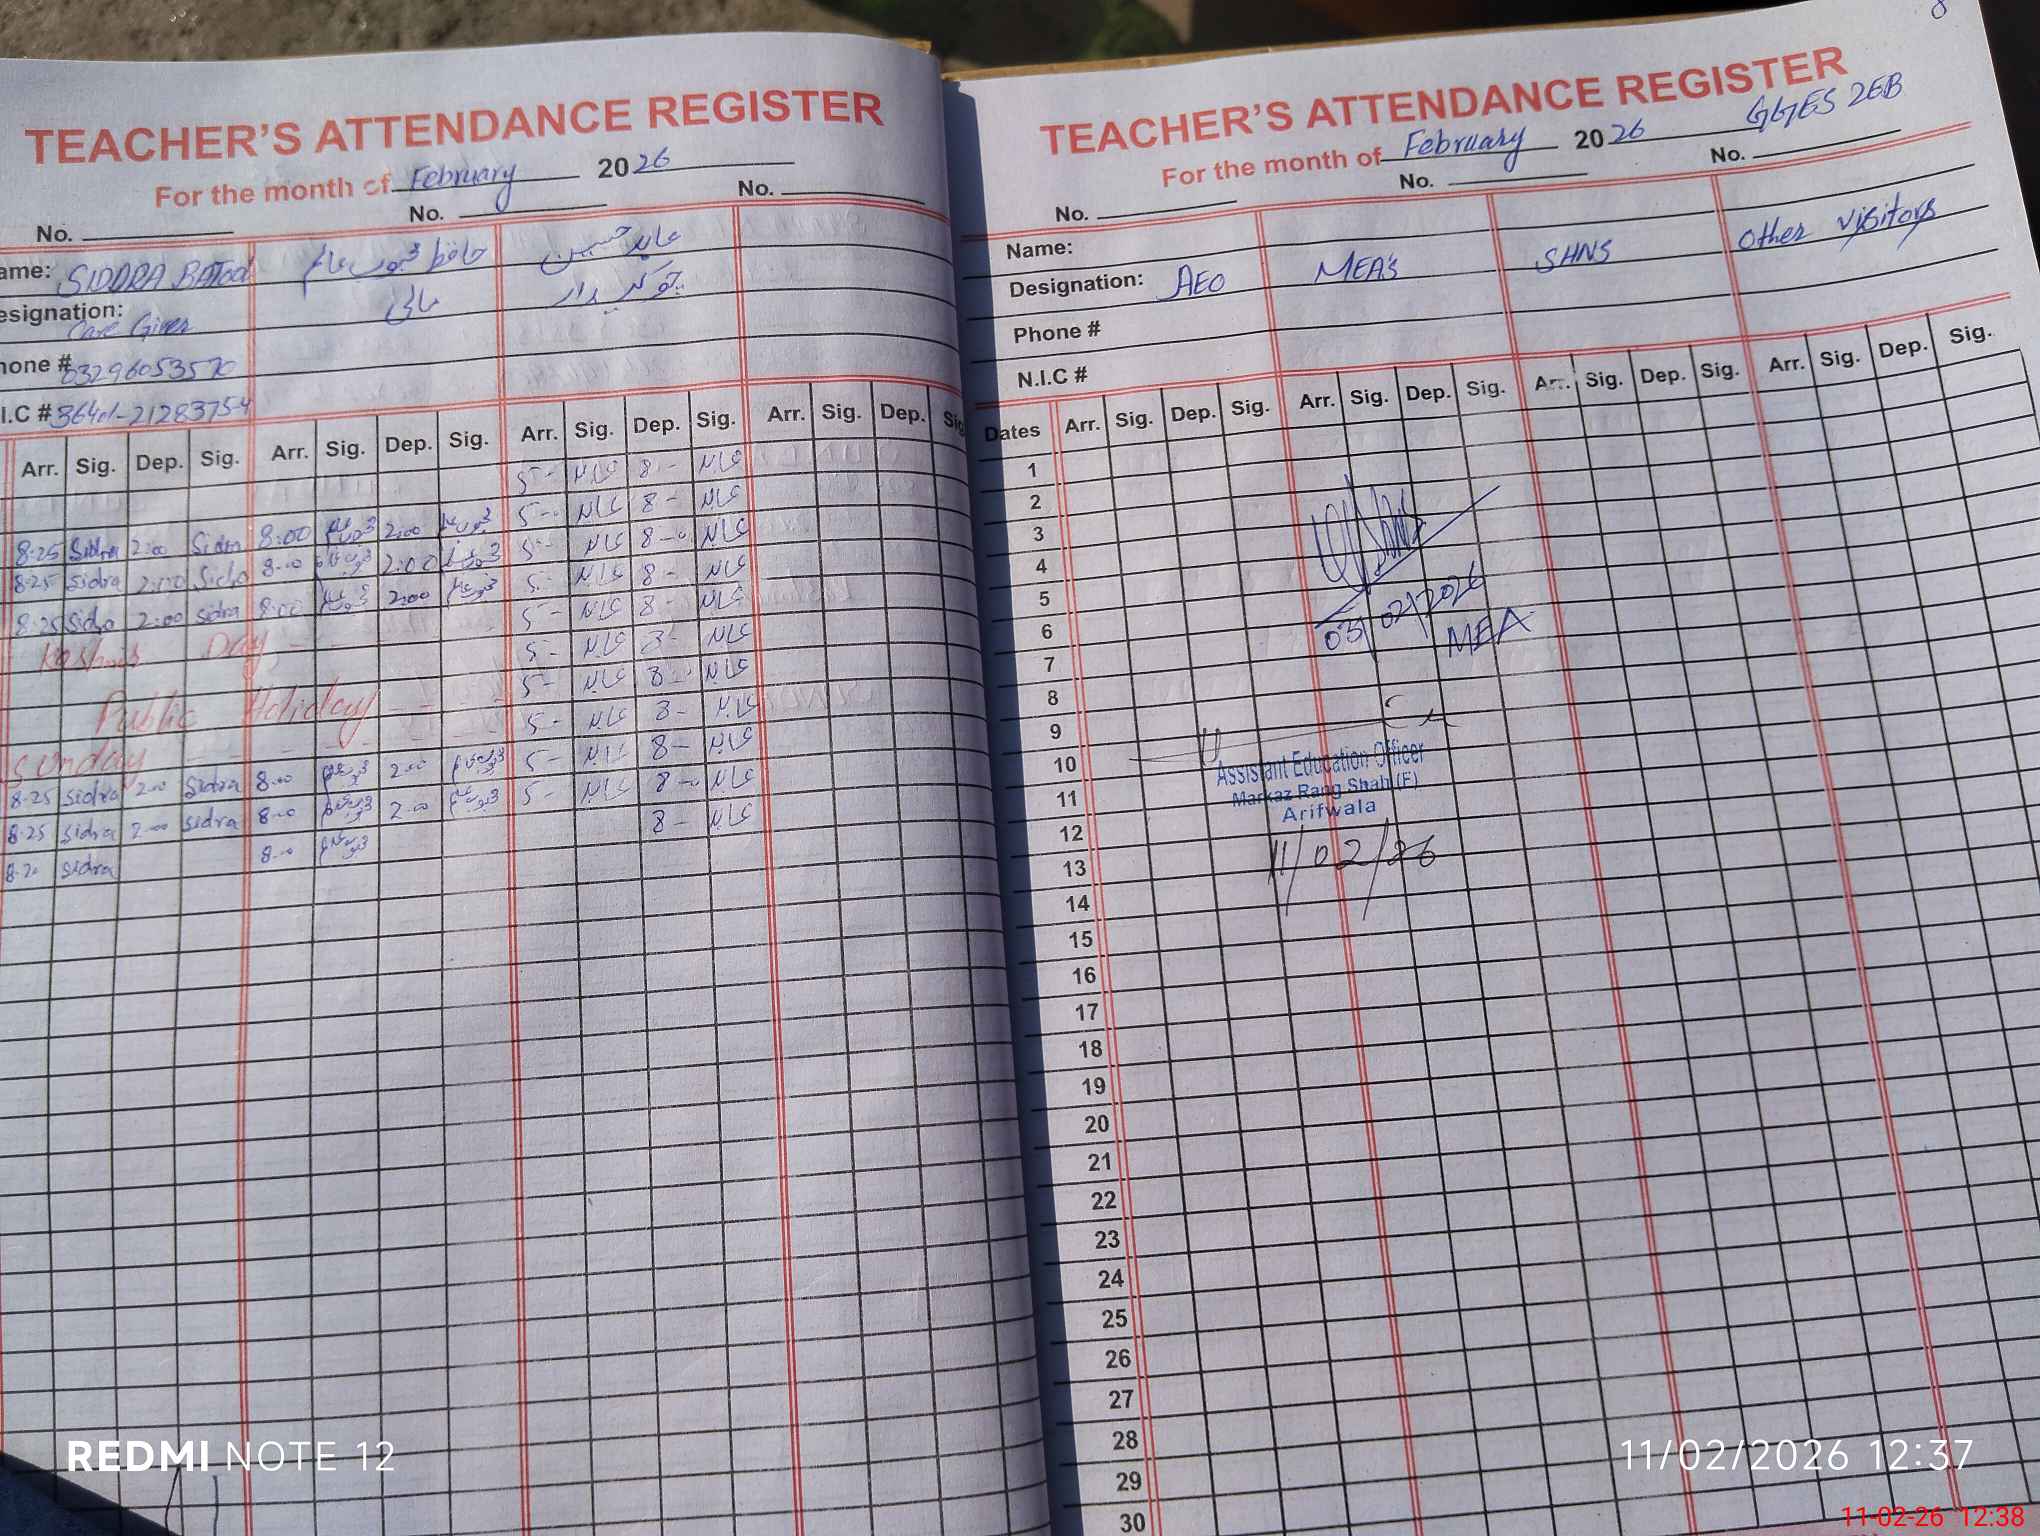 TEACHER'S ATTENDANCE REGISTER
For the month of February 2026
No. No. No.
ame: SIDDRA BATool حافظ محبوب عالم عابد حسین
esignation: Care Giver مالی چوکیدار
hone # 03296053570
I.C #
Arr. Sig. Dep. Sig. Arr. Sig. Dep. Sig. Arr. Sig. Dep. Sig. Arr. Sig. Dep. Sig
5 - عابد 8 - عابد
5 - عابد 8 - عابد
8-25 Sidra 2:00 Sidra 8:00 محبوب عالم 2:00 محبوب عالم 5 - عابد 8 - عابد
8-25 Sidra 2:00 Sidra 8-00 محبوب عالم 2:00 محبوب عالم 5 - عابد 8 - عابد
8-25 Sidra 2:00 Sidra 8:00 محبوب عالم 2:00 محبوب عالم 5 - عابد 8 - عابد
Kashmir Day 5 - عابد 8 - عابد
5 - عابد 8 - عابد
Public Holiday 5 - عابد 8 - عابد
Sunday 5 - عابد 8 - عابد
8-25 Sidra 2-00 Sidra 8-00 محبوب عالم 2-00 محبوب عالم 5 - عابد 8 - عابد
8-25 Sidra 2-00 Sidra 8-00 محبوب عالم 2-00 محبوب عالم 8 - عابد
8-20 Sidra 8-00 محبوب عالم
8
TEACHER'S ATTENDANCE REGISTER
For the month of February 2026 GGES 2EB
No. No. No.
Name:
Designation: AEO MEA's SHNS Other Visitors
Phone #
N.I.C #
Dates Arr. Sig. Dep. Sig. Arr. Sig. Dep. Sig. Arr. Sig. Dep. Sig. Arr. Sig. Dep. Sig.
1
2
3
4
5
6 03/02/2026 MEA
7
8
9
10 Assistant Education Officer
11 Markaz Rang Shah (F)
12 Arifwala
13 11/02/26
14
15
16
17
18
19
20
21
22
23
24
25
26
27
28
29
30
REDMI NOTE 12
11/02/2026 12:37
11-02-26 12:38